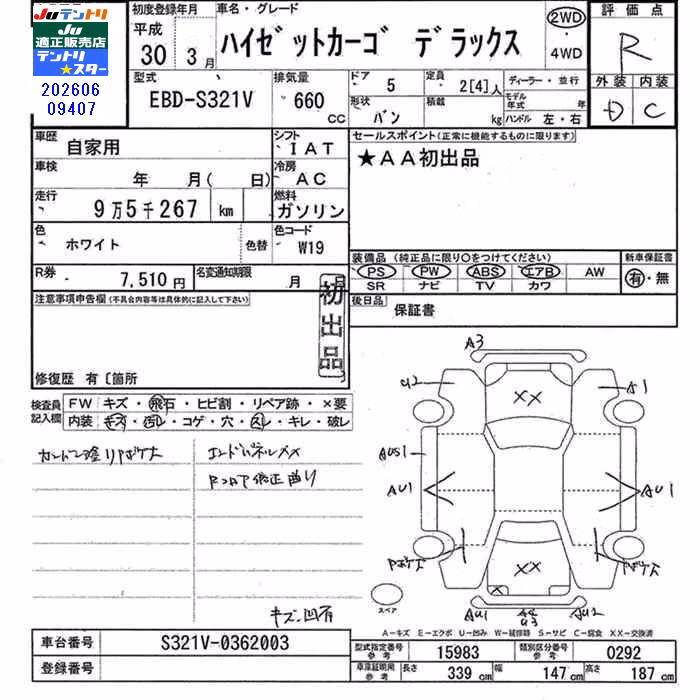 Juテントリ
Ju
適正販売店
テントリ
★スター
202606
09407
初度登録年月
平成
30 3月
車名・グレード
ハイゼットカーゴ デラックス
2WD
・
4WD
評価点
R
外装 内装
D C
型式
EBD-S321V
排気量
660
CC
ドア 5
形状 バン
定員 2[4]人
積載 kg
ディーラー・並行
モデル年式 年
ハンドル 左・右
車歴 自家用
シフト IAT
車検 年 月( 日)
冷房 AC
走行 9万5千267 km
燃料 ガソリン
色 ホワイト 色替
色コード W19
R券 7,510円
名変通知期限 月
セールスポイント(正常に機能するものに限ります)
★AA初出品
装備品 (純正品に限り○をつけてください)
PS PW ABS エアB AW
SR ナビ TV カワ
新車保証書
有・無
後日品 保証書
注意事項申告欄(不具合内容等は具体的に記入して下さい)
初出品
修復歴 有〔箇所 〕
検査員記入欄
FW キズ・飛石・ヒビ割・リペア跡・×要
内装 キズ・汚レ・コゲ・穴・スレ・キレ・破レ
エンドパネルXX
キズ凹有
A3
U2
A1
XX
AUS1
AU1
AU1
XX
AU1
AU2
スペア
A-キズ E-エクボ U-凹み W-補修跡 S-サビ C-腐食 XX-交換済
車台番号 S321V-0362003
登録番号
型式指定番号参考 15983
類別区分番号参考 0292
車庫証明用参考 長さ 339cm 幅 147cm 高さ 187cm